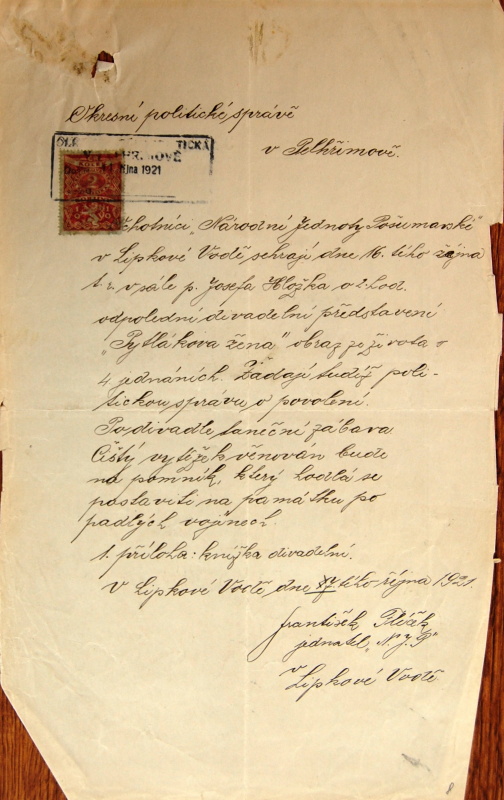 Okresní politické správě
v Pelhřimově.
TICKÁ
října 1921
Ochotníci „Národní Jednoty Pošumavské"
v Lipkové Vodě sehrají dne 16. tího října
t. r. v sále p. Josefa Hložka o 2 hod.
odpolední divadelní představení
„Pytlákova žena" obraz ze života o
4 jednáních. Žádají tudíž poli-
tickou správu o povolení.
Po divadle taneční zábava
Čistý výtěžek věnován bude
na pomník, který hodlá se
postaviti na památku po
padlých vojínech.
1. příloha: knížka divadelní.
V Lipkové Vodě dne tího října 1921.
František
jednatel „N. J. P."
v
Lipkové Vodě